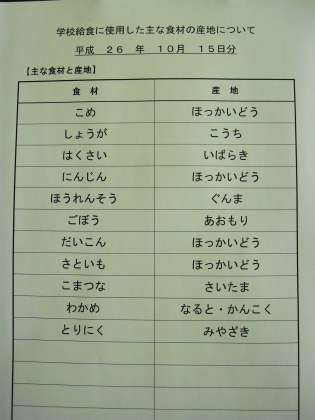 学校給食に使用した主な食材の産地について
平成 26 年 10月 15日分
【主な食材と産地】
食 材 産 地
こめ ほっかいどう
しょうが こうち
はくさい いばらき
にんじん ほっかいどう
ほうれんそう ぐんま
ごぼう あおもり
だいこん ほっかいどう
さといも ほっかいどう
こまつな さいたま
わかめ なると・かんこく
とりにく みやざき